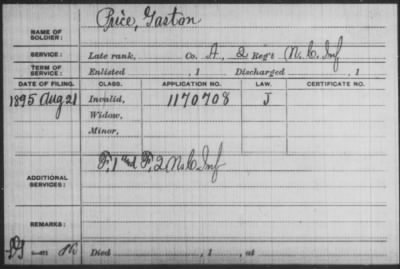 Price, Gaston
NAME OF SOLDIER:
SERVICE: Late rank, Co. A, 2 Reg't N.C. Inf
TERM OF SERVICE: Enlisted , 1 Discharged , 1
DATE OF FILING. CLASS. APPLICATION NO. LAW. CERTIFICATE NO.
1895 Aug 21 Invalid, 1170708 J
Widow,
Minor,
F, 1 and F, 2 N.C. Inf
ADDITIONAL SERVICES:
REMARKS:
Died , 1 , at